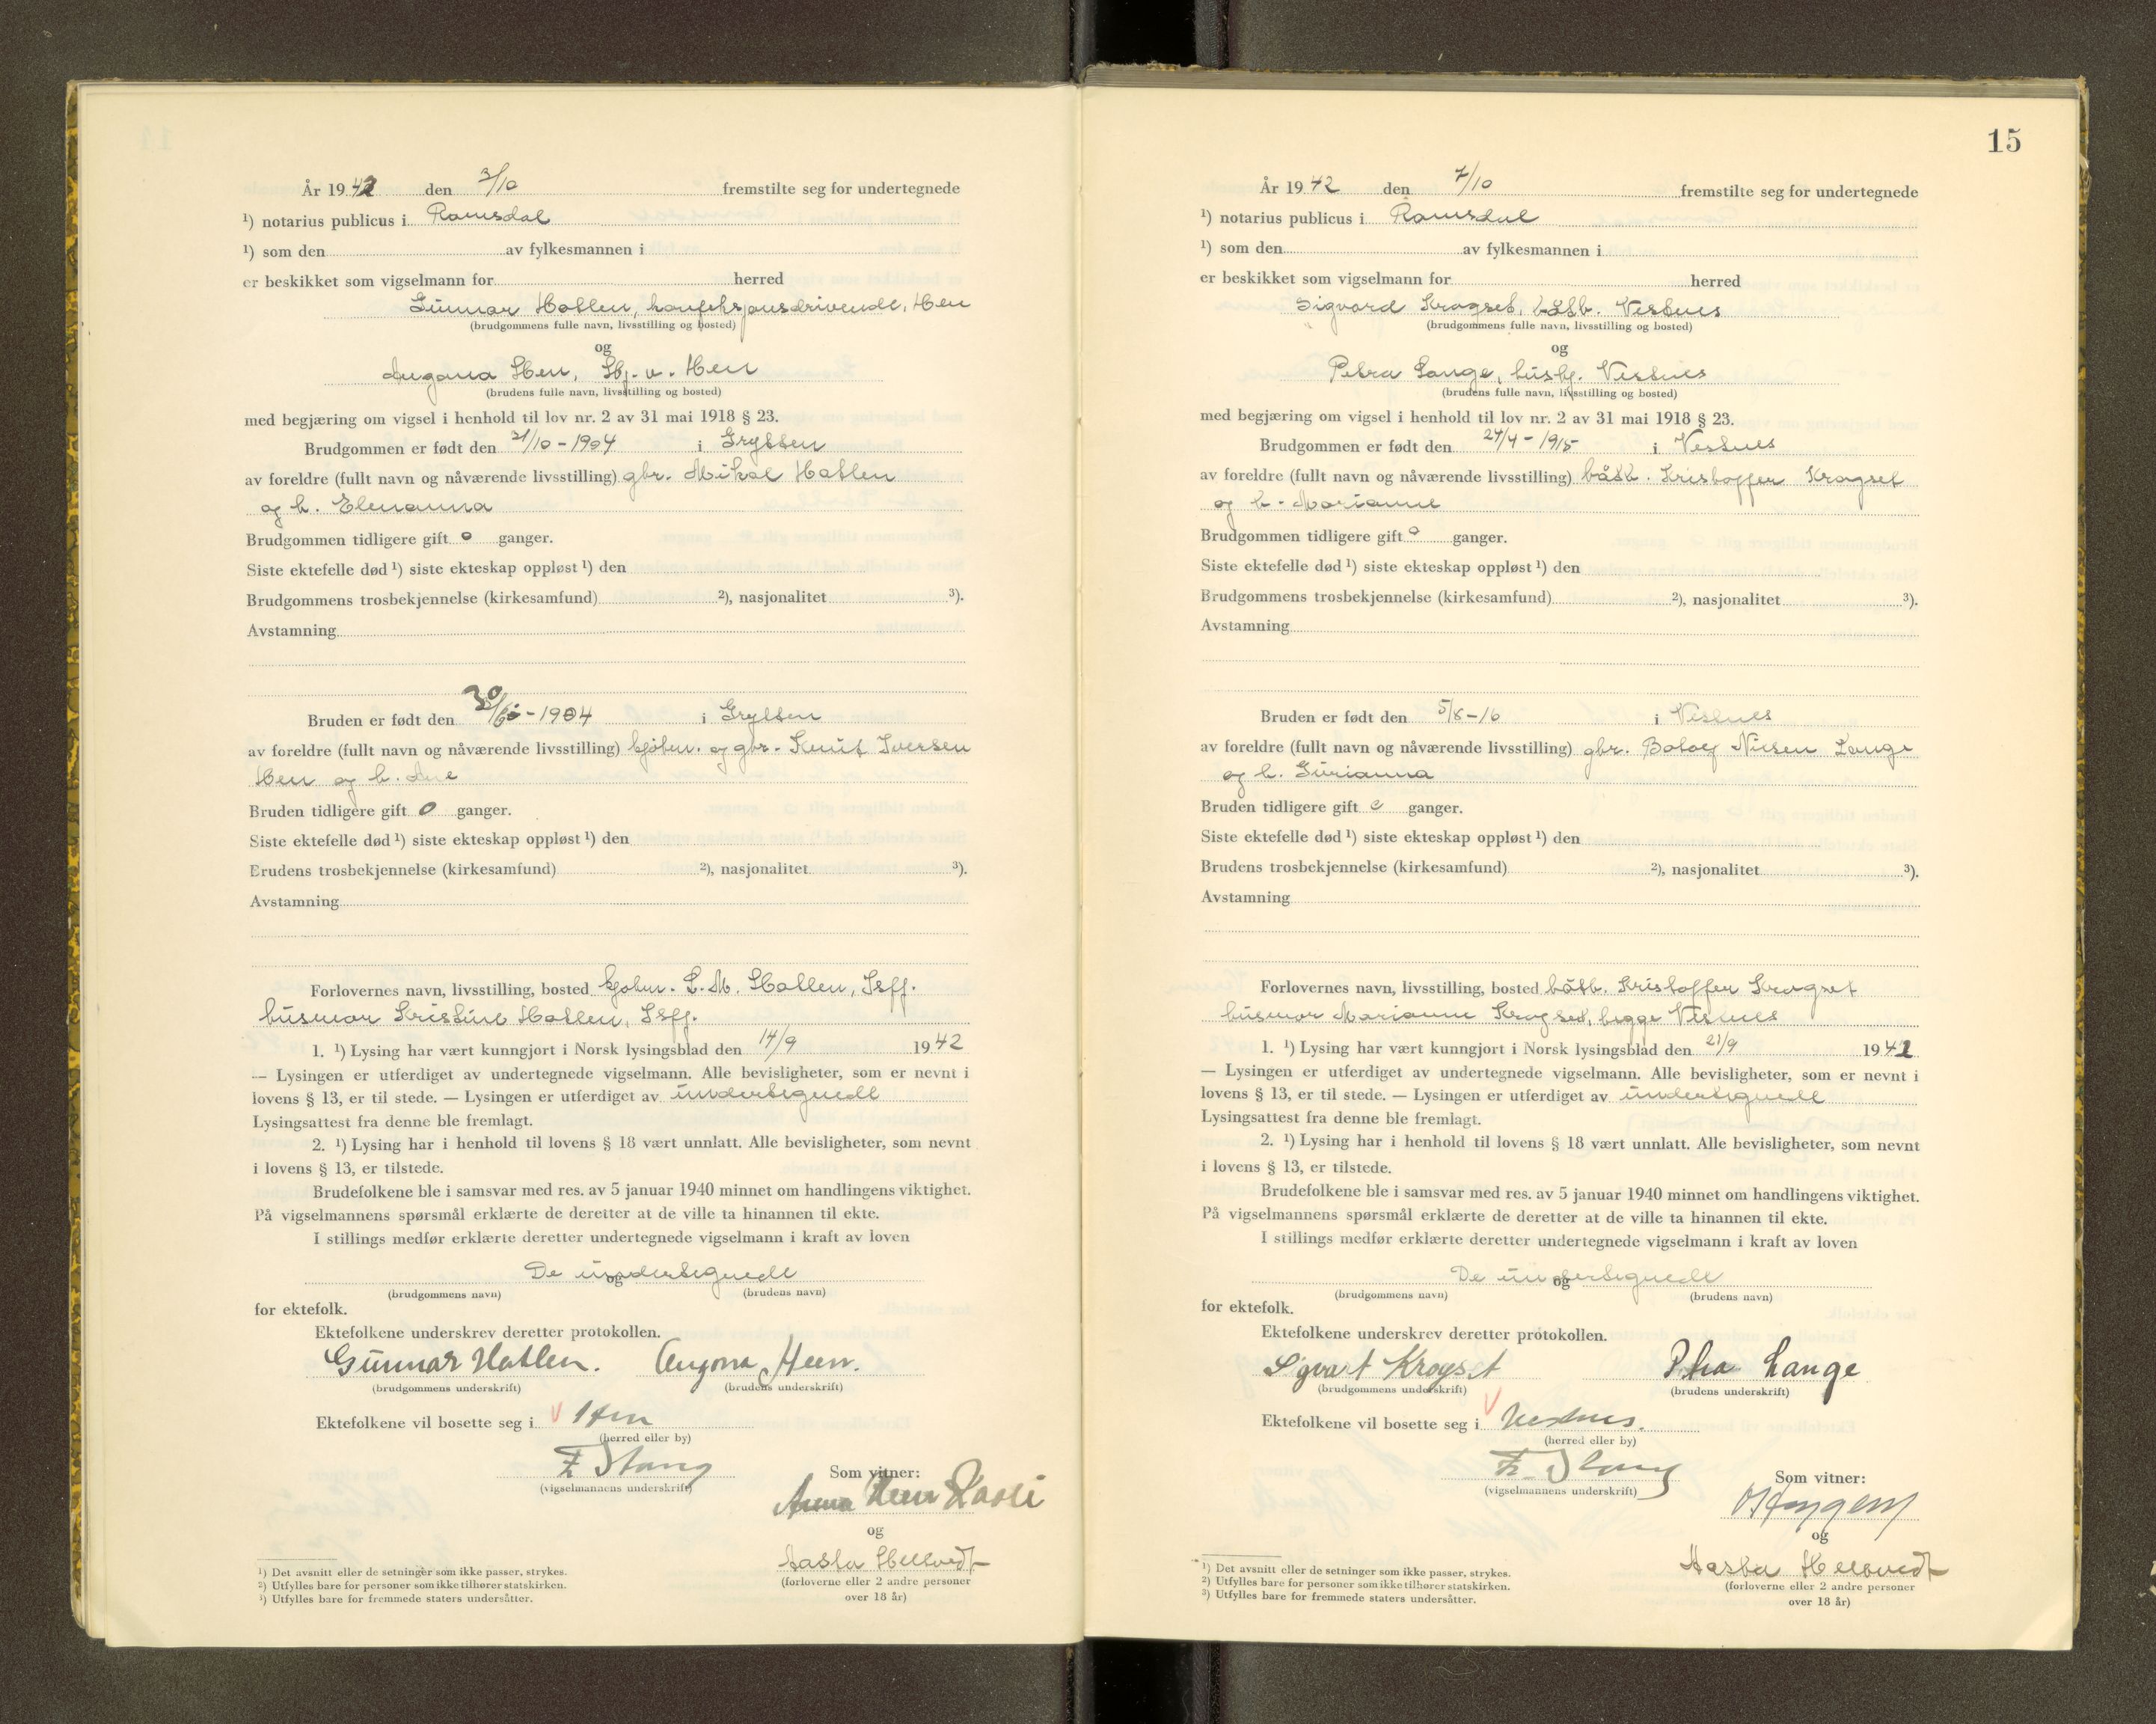 År 1942 den 3/10 fremstilte seg for undertegnede
¹) notarius publicus i Romsdal
¹) som den av fylkesmannen i
er beskikket som vigselmann for herred
Gunnar Hatlen, konfeksjonsdrivende, Hen
(brudgommens fulle navn, livsstilling og bosted)
og
Augona Hen, Hj. v. Hen
(brudens fulle navn, livsstilling og bosted)
med begjæring om vigsel i henhold til lov nr. 2 av 31 mai 1918 § 23.
Brudgommen er født den 21/10-1904 i Grytten
av foreldre (fullt navn og nåværende livsstilling) gbr. Mikal Hatlen
og h. Elenanna
Brudgommen tidligere gift 0 ganger.
Siste ektefelle død ¹) siste ekteskap oppløst ¹) den
Brudgommens trosbekjennelse (kirkesamfund) ²), nasjonalitet ³).
Avstamning
Bruden er født den 30/6-1904 i Grytten
av foreldre (fullt navn og nåværende livsstilling) kjøbm. og gbr. Knut Iversen
Hen og h. Ane
Bruden tidligere gift 0 ganger.
Siste ektefelle død ¹) siste ekteskap oppløst ¹) den
Brudens trosbekjennelse (kirkesamfund) ²), nasjonalitet ³).
Avstamning
Forlovernes navn, livsstilling, bosted kjøbm. L. M. Hatlen, Isfj.
husmor Kristine Hatlen, Isfj.
1. ¹) Lysing har vært kunngjort i Norsk lysingsblad den 14/9 1942
— Lysingen er utferdiget av undertegnede vigselmann. Alle bevisligheter, som er nevnt i
lovens § 13, er til stede. — Lysingen er utferdiget av undertegnede
Lysingsattest fra denne ble fremlagt.
2. ¹) Lysing har i henhold til lovens § 18 vært unnlatt. Alle bevisligheter, som nevnt
i lovens § 13, er tilstede.
Brudefolkene ble i samsvar med res. av 5 januar 1940 minnet om handlingens viktighet.
På vigselmannens spørsmål erklærte de deretter at de ville ta hinannen til ekte.
I stillings medfør erklærte deretter undertegnede vigselmann i kraft av loven
De undertegnede
og
(brudgommens navn) (brudens navn)
for ektefolk.
Ektefolkene underskrev deretter protokollen.
Gunnar Hatlen. Augona Heen.
(brudgommens underskrift) (brudens underskrift)
Ektefolkene vil bosette seg i Hen
(herred eller by)
F. Stang
(vigselmannens underskrift)
Som vitner:
Anna Heen
og
Aasta Hellvedt
(forloverne eller 2 andre personer
over 18 år)
¹) Det avsnitt eller de setninger som ikke passer, strykes.
²) Utfylles bare for personer som ikke tilhører statskirken.
³) Utfylles bare for fremmede staters undersåtter.
15
År 1942 den 7/10 fremstilte seg for undertegnede
¹) notarius publicus i Romsdal
¹) som den av fylkesmannen i
er beskikket som vigselmann for herred
Sigvard Kragset, båtb. Vestnes
(brudgommens fulle navn, livsstilling og bosted)
og
Petra Lange, hushj. Vestnes
(brudens fulle navn, livsstilling og bosted)
med begjæring om vigsel i henhold til lov nr. 2 av 31 mai 1918 § 23.
Brudgommen er født den 24/4-1915 i Vestnes
av foreldre (fullt navn og nåværende livsstilling) båtb. Kristoffer Kragset
og h. Marianne
Brudgommen tidligere gift 0 ganger.
Siste ektefelle død ¹) siste ekteskap oppløst ¹) den
Brudgommens trosbekjennelse (kirkesamfund) ²), nasjonalitet ³).
Avstamning
Bruden er født den 5/8-16 i Vestnes
av foreldre (fullt navn og nåværende livsstilling) gbr. Nilsen Lange
og h. Gurianna
Bruden tidligere gift 0 ganger.
Siste ektefelle død ¹) siste ekteskap oppløst ¹) den
Brudens trosbekjennelse (kirkesamfund) ²), nasjonalitet ³).
Avstamning
Forlovernes navn, livsstilling, bosted båtb. Kristoffer Kragset
husmor Marianne Kragset, begge Vestnes
1. ¹) Lysing har vært kunngjort i Norsk lysingsblad den 21/9 1942
— Lysingen er utferdiget av undertegnede vigselmann. Alle bevisligheter, som er nevnt i
lovens § 13, er til stede. — Lysingen er utferdiget av undertegnede
Lysingsattest fra denne ble fremlagt.
2. ¹) Lysing har i henhold til lovens § 18 vært unnlatt. Alle bevisligheter, som nevnt
i lovens § 13, er tilstede.
Brudefolkene ble i samsvar med res. av 5 januar 1940 minnet om handlingens viktighet.
På vigselmannens spørsmål erklærte de deretter at de ville ta hinannen til ekte.
I stillings medfør erklærte deretter undertegnede vigselmann i kraft av loven
De undertegnede
og
(brudgommens navn) (brudens navn)
for ektefolk.
Ektefolkene underskrev deretter protokollen.
Sigvart Kragset Petra Lange
(brudgommens underskrift) (brudens underskrift)
Ektefolkene vil bosette seg i Vestnes.
(herred eller by)
F. Stang
(vigselmannens underskrift)
Som vitner:
og
Aasta Hellvedt
(forloverne eller 2 andre personer
over 18 år)
¹) Det avsnitt eller de setninger som ikke passer, strykes.
²) Utfylles bare for personer som ikke tilhører statskirken.
³) Utfylles bare for fremmede staters undersåtter.